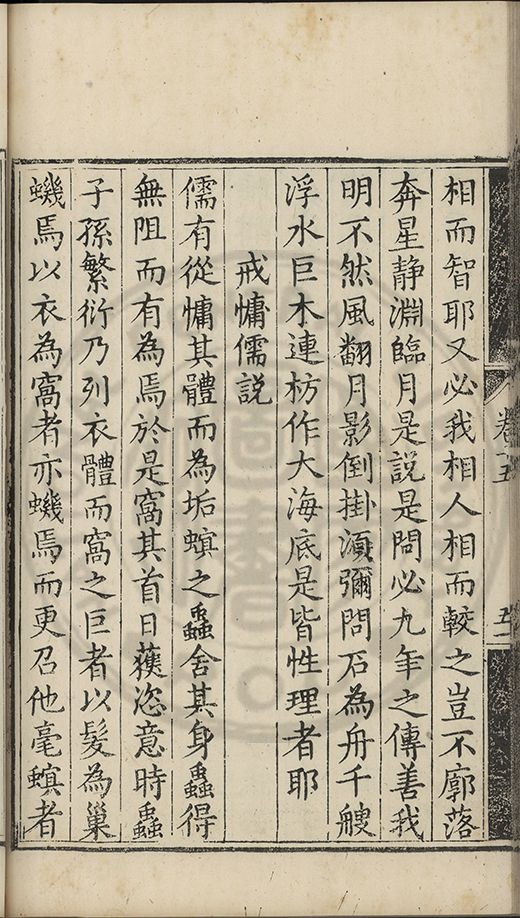 相而智耶又必我相人相而較之豈不廓落
奔星静淵臨月是說是問必九年之傳善我
明不然風翻月影倒掛湏彌問石為舟千艘
浮水巨木連枋作大海底是皆性理者耶
戒慵儒説
儒有從慵其體而為垢螾之蟲舍其身蟲得
無阻而有為焉於是窩其首日蕕恣意時蟲
子孫繁衍乃列衣體而窩之巨者以髮為巢
蟣焉以衣為窩者亦蟣焉而更召他毫螾者
卷十五
五十一